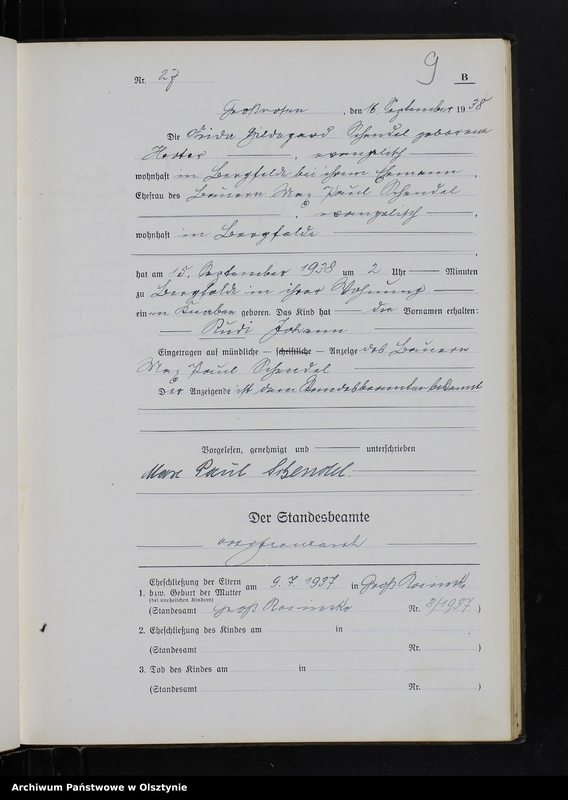 9
B
Nr. 27
, den 16. September 1938
Die Frida Hildegard Schendel geborene
, evangelisch
wohnhaft in Bergfelde bei ihrem Ehemann,
Ehefrau des Bauern Max Paul Schendel
, evangelisch,
wohnhaft in Bergfelde
,
hat am 15. September 1938 um 2 Uhr — Minuten
zu Bergfelde in ihrer Wohnung
einen Knaben geboren. Das Kind hat — die Vornamen erhalten:
Rudi Johann
Eingetragen auf mündliche — schriftliche — Anzeige des Bauern
Max Paul Schendel
Der Anzeigende ist dem Standesbeamten bekannt
Vorgelesen, genehmigt und — unterschrieben
Max Paul Schendel.
Der Standesbeamte
1. Eheschließung der Eltern
bzw. Geburt der Mutter
(bei unehelichen Kindern)
am 9.7.1937 in Groß Rosinsko
(Standesamt Groß Rosinsko Nr. 8/1937)
2. Eheschließung des Kindes am in
(Standesamt Nr. )
3. Tod des Kindes am in
(Standesamt Nr. )
Archiwum Państwowe w Olsztynie